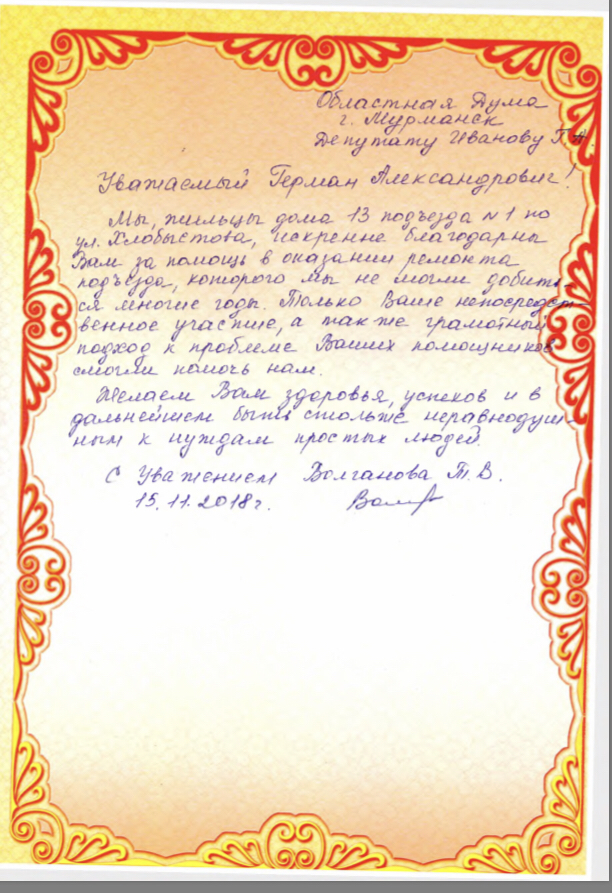 Областная Дума
г. Мурманск
Депутату Иванову Г.А.
Уважаемый Герман Александрович!
Мы, жильцы дома 13 подъезда №1 по
ул. Хлобыстова, искренне благодарны
Вам за помощь в оказании ремонта
подъезда, которого мы не могли добить-
ся многие годы. Только Ваше непосредст-
венное участие, а так же грамотный
подход к проблеме Ваших помощников
смогли помочь нам.
Желаем Вам здоровья, успехов и в
дальнейшем быть столь же неравнодуш-
ным к нуждам простых людей.
С Уважением Волганова Т.В.
15.11.2018г.